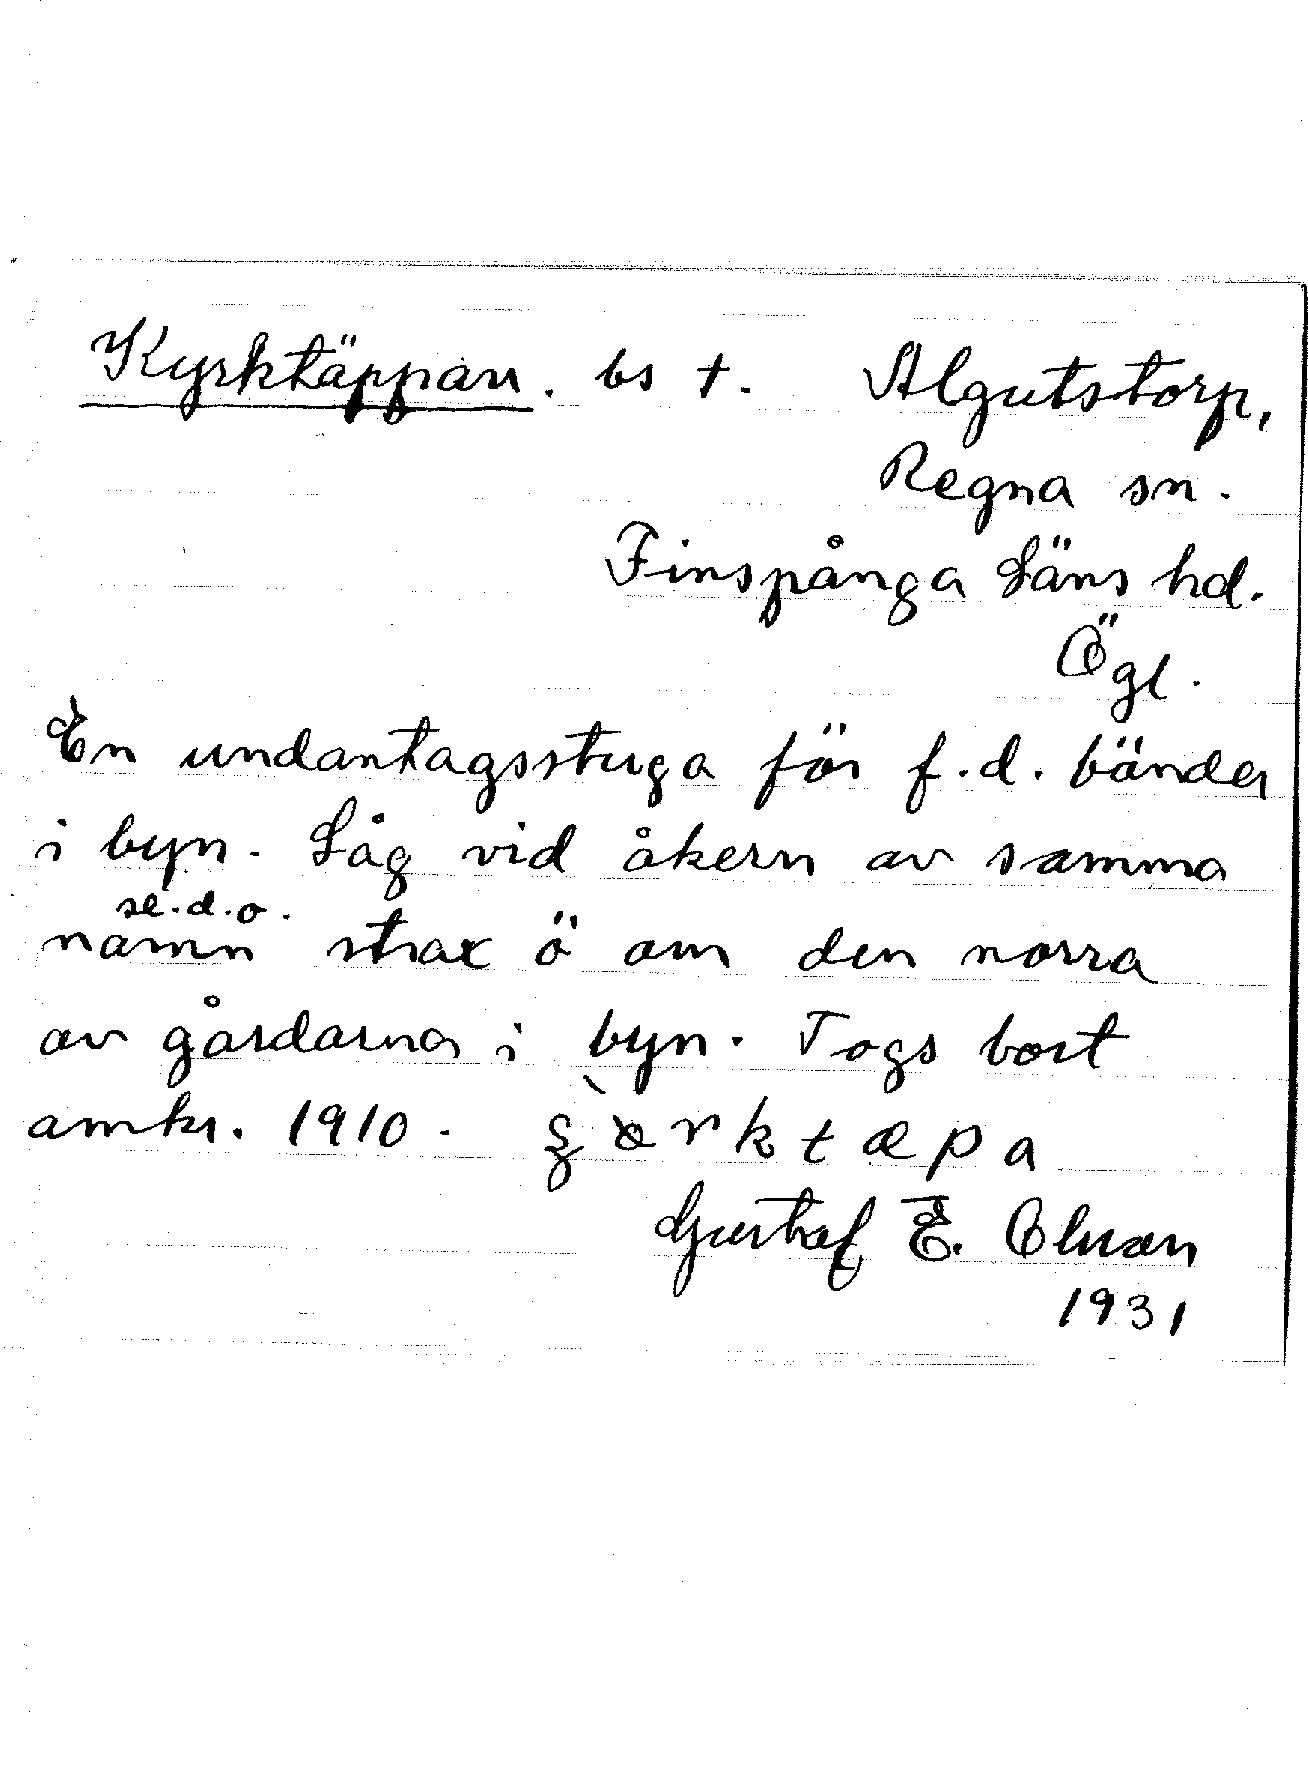 Kyrktäppan. bs †. Algutstorp,
Regna sn.
Finspånga Läns hd.
Ögl.
En undantagsstuga för f.d. bönder
i byn. Låg vid åkern av samma
se.d.o.
namn strax ö om den norra
av gårdarna i byn. Togs bort
omkr. 1910.
Gustaf E.
1931